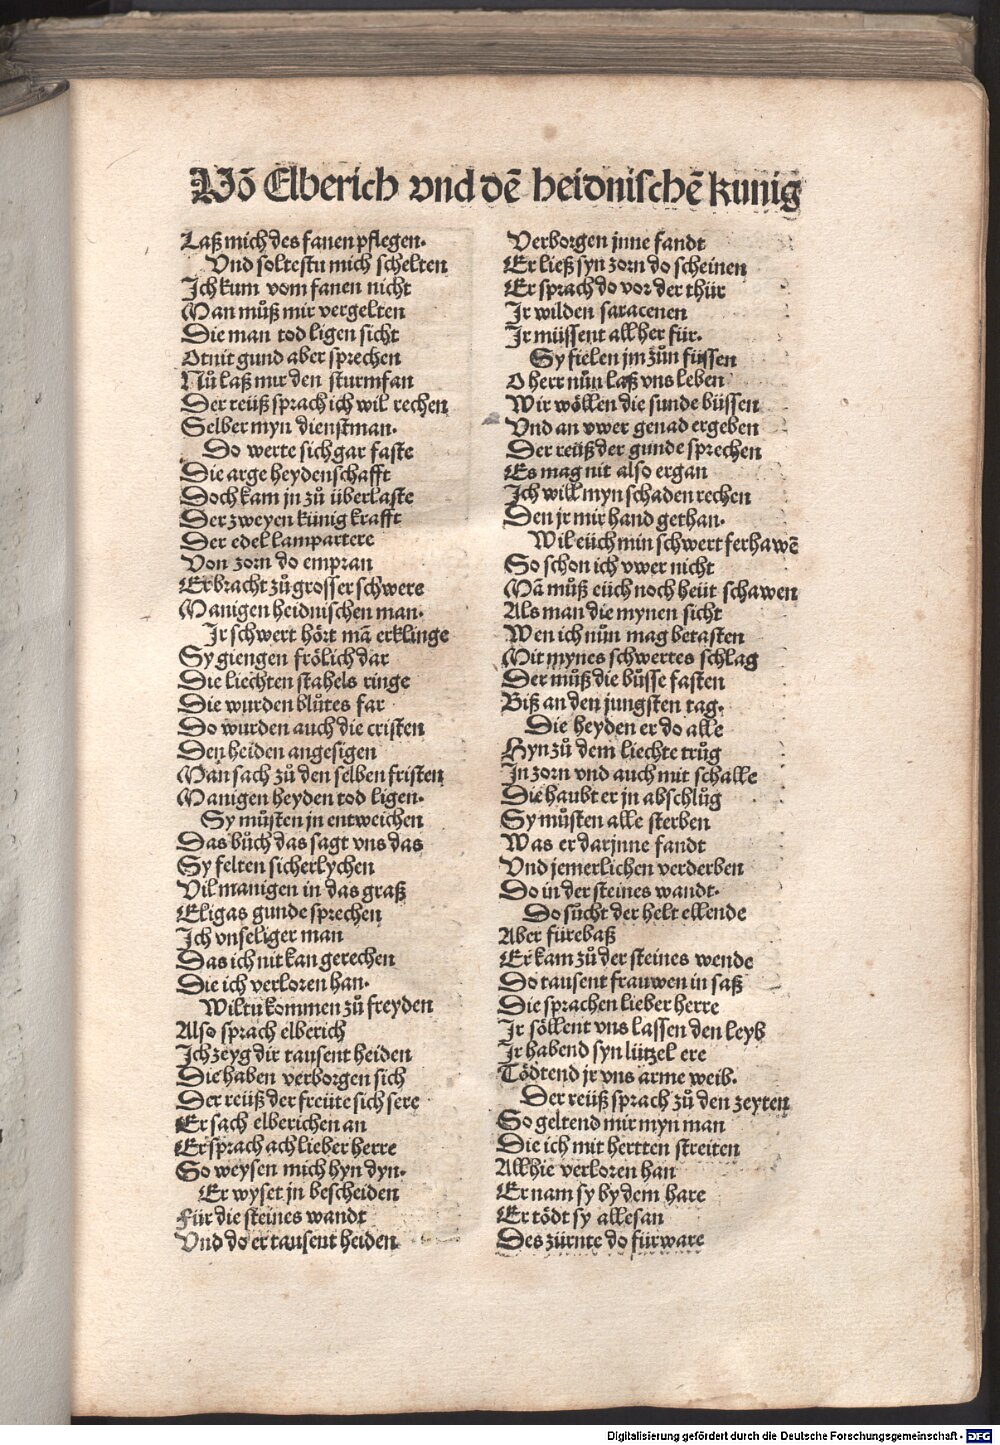 Vō Elberich vnd dē heidnischē kunig
Laß mich des fanen pflegen.
Vnd soltestu mich schelten
Ich kum vom fanen nicht
Man můß mir vergelten
Die man tod ligen sicht
Otnit gund aber sprechen
Nů laß mir den sturmfan
Der reüß sprach ich wil rechen
Selber myn dienstman.
Do werte sich gar faste
Die arge heydenschafft
Doch kam jn zů überlaste
Der zweyen künig krafft
Der edel lampartere
Von zorn do empran
Er bracht zů grosser schwere
Manigen heidnischen man.
Ir schwert hört mā erklinge
Sy giengen frölich dar
Die liechten stahels ringe
Die wurden blůtes far
Do wurden auch die cristen
Den heiden angesigen
Man sach zů den selben fristen
Manigen heyden tod ligen.
Sy můsten jn entweichen
Das bůch das sagt vns das
Sy felten sicherlychen
Vil manigen in das graß
Eligas gunde sprechen
Ich vnseliger man
Das ich nit kan gerechen
Die ich verloren han.
Wiltu kommen zů freyden
Also sprach elberich
Ich zeyg dir tausent heiden
Die haben verborgen sich
Der reüß der freüte sich sere
Er sach elberichen an
Er sprach ach lieber herre
So weysen mich hyn dyn.
Er wyset jn bescheiden
Für die steines wandt
Vnd do er tausent heiden
Verborgen jnne fandt
Er ließ syn zorn do scheinen
Er sprach do vor der thür
Ir wilden saracenen
Ir müssent all her für.
Sy fielen jm zůn füssen
O herr nůn laß vns leben
Wir wöllen die sunde büssen
Vnd an vwer genad ergeben
Der reüß der gunde sprechen
Es mag nit also ergan
Ich will myn schaden rechen
Den jr mir hand gethan.
Wil eüch min schwert ferhawē
So schon ich vwer nicht
Mā můß eüch noch heüt schawen
Als man die mynen sicht
Wen ich nůn mag betasten
Mit mynes schwertes schlag
Der můß die bůsse fasten
Biß an den jungsten tag.
Die heyden er do alle
Hyn zů dem liechte trůg
In zorn vnd auch mit schalle
Die haubt er jn abschlůg
Sy můsten alle sterben
Was er darjnne fandt
Vnd jemerlichen verderben
Do in der steines wandt.
Do sůcht der helt ellende
Aber fürebaß
Er kam zů der steines wende
Do tausent frauwen in saß
Die sprachen lieber herre
Ir söllent vns lassen den leyb
Ir habend syn lützel ere
Tödtend jr vns arme weib.
Der reüß sprach zů den zeyten
So geltend mir myn man
Die ich mit hertten streiten
All hie verloren han
Er nam sy by dem hare
Er tödt sy alle san
Des zürnte do fürware
Digitalisierung gefördert durch die Deutsche Forschungsgemeinschaft - DFG